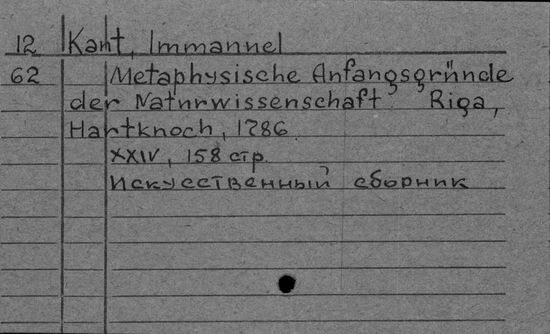 12 Kant, Immannel
62 Metaphysische Anfangsgründe
der Naturwissenschaft. Riga,
Hartknoch, 1786
XXIV, 158 стр.
Искусственный сборник